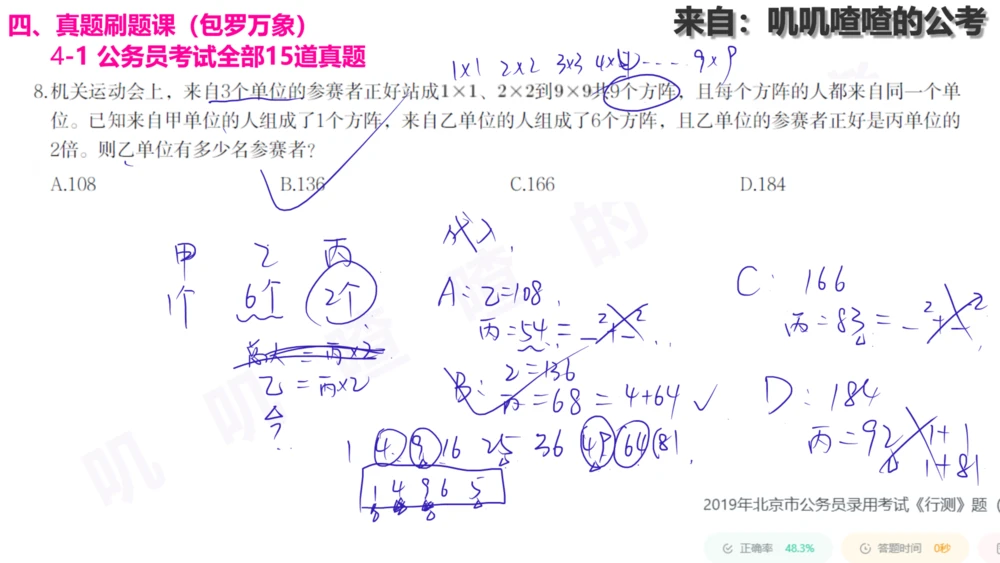 四、真题刷题课（包罗万象）
来自：叽叽喳喳的公考
4-1 公务员考试全部15道真题
1×1 2×2 3×3 4×4 ---- 9×9
8.机关运动会上，来自3个单位的参赛者正好站成1×1、2×2到9×9共9个方阵，且每个方阵的人都来自同一个单
位。已知来自甲单位的人组成了1个方阵，来自乙单位的人组成了6个方阵，且乙单位的参赛者正好是丙单位的
2倍。则乙单位有多少名参赛者？
A.108 B.136 C.166 D.184
代入
甲 乙 丙
1个 6个 2个
乙=丙×2
?
A: 乙=108
丙=54=_²+_²
B: 乙=136
丙=68=4+64 ✓
C: 166
丙=83=_²+_²
D: 184
丙=92 1+1
1+81
1 4 9 16 25 36 49 64 81
1 4 9 6 5
2019年北京市公务员录用考试《行测》题（
正确率 48.3% 答题时间 0秒
叽叽喳喳的